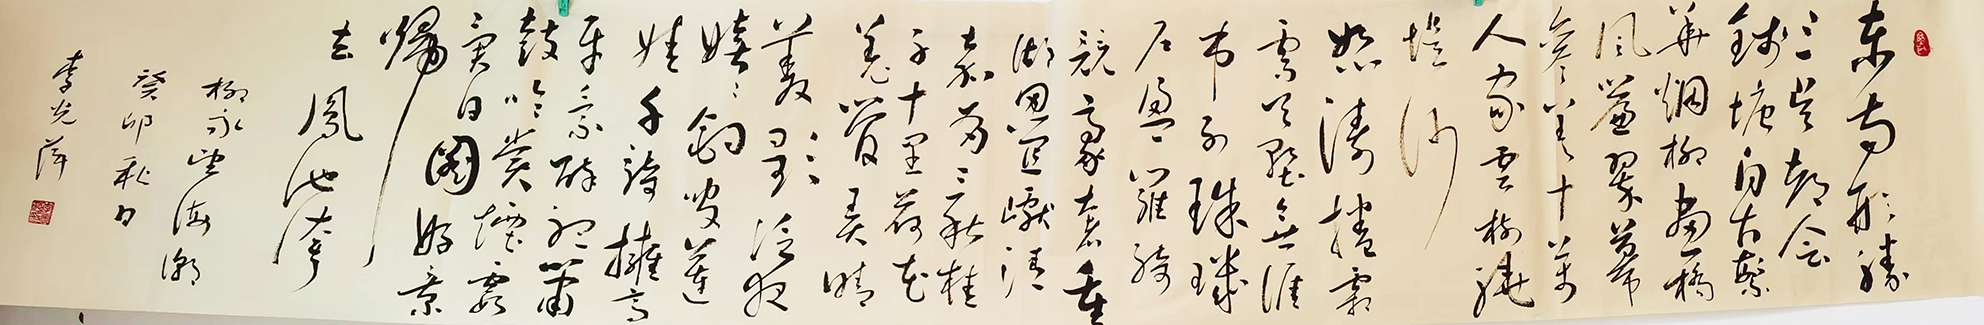 东南形胜
三吴都会
钱塘自古繁
华烟柳画桥
风帘翠幕
参差十万
人家云树绕
堤沙
怒涛卷霜
雪天堑无涯
市列珠玑
户盈罗绮
竞豪奢重
湖叠巘清
嘉有三秋桂
子十里荷花
羌管弄晴
菱歌泛夜
嬉嬉钓叟莲
娃千骑拥高
牙乘醉听箫
鼓吟赏烟霞
异日图将好景
归
去凤池夸
柳永望海潮
癸卯秋月
李光萍